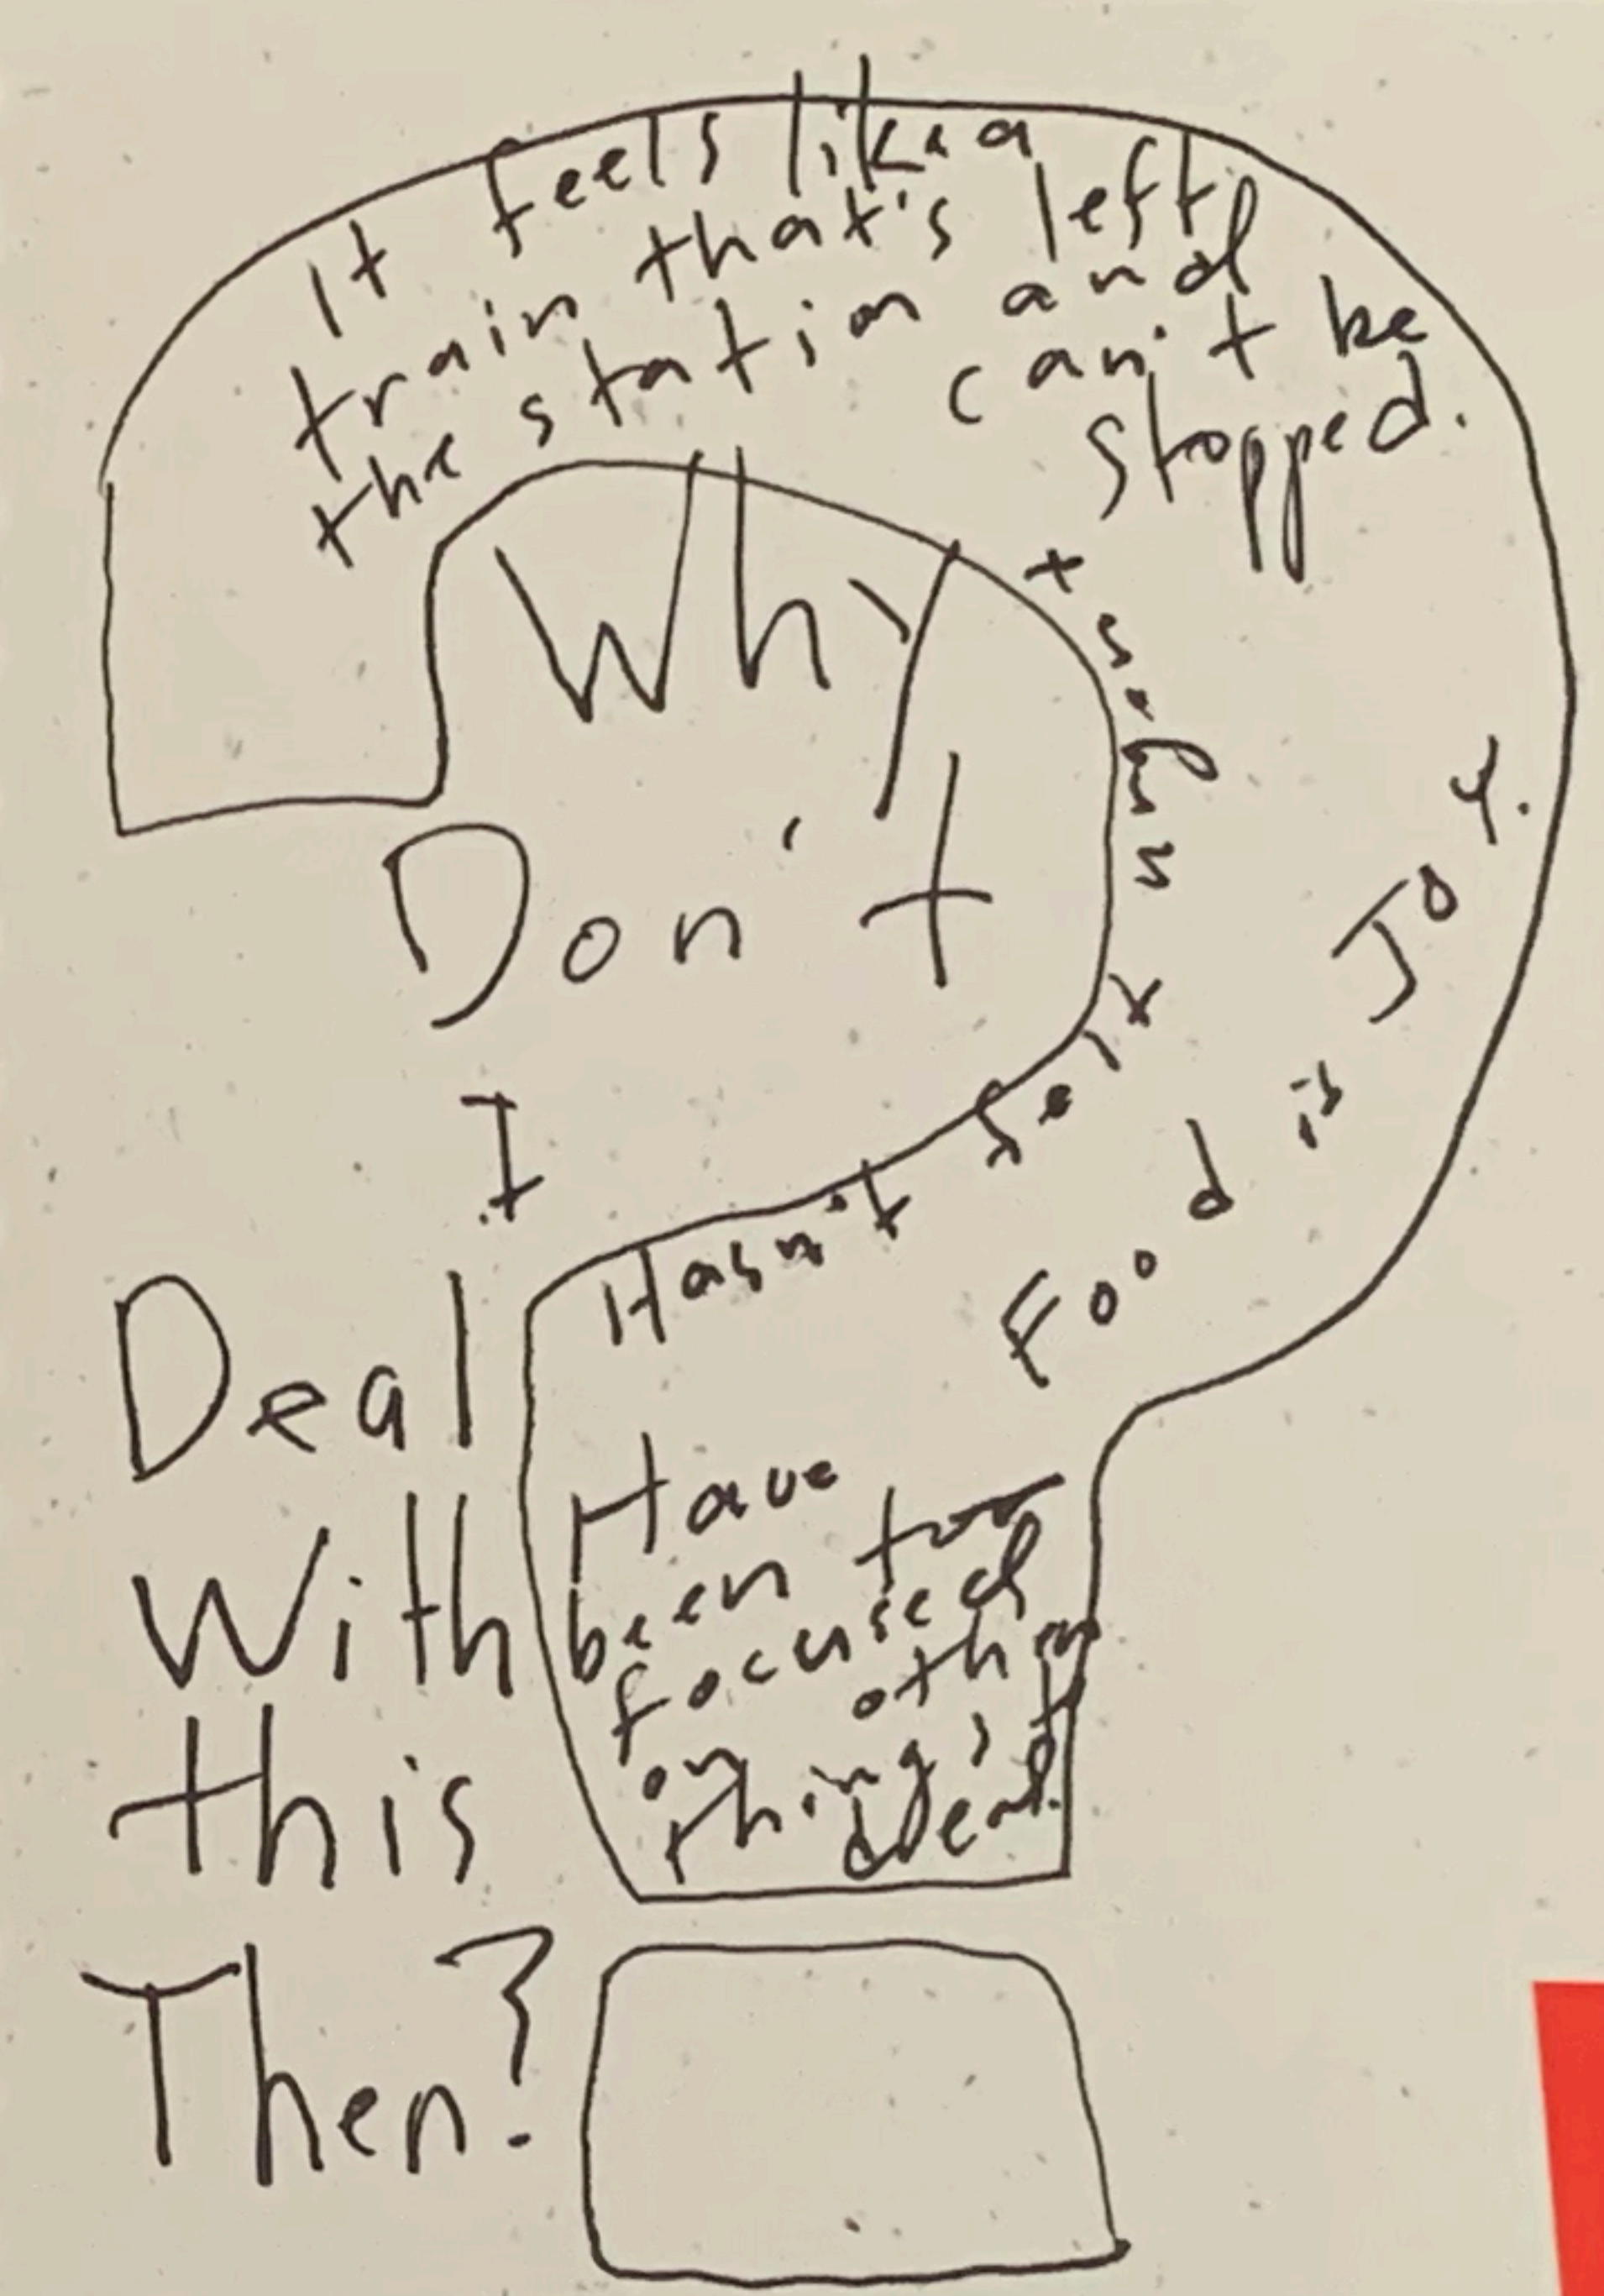 It feels like a
train that's left
the station and
can't be
stopped.
Why
Don't
I
Deal
With
this
Then?
Hasn't felt urgent
Food is Joy.
Have
been too
focused
on other
things
deal.